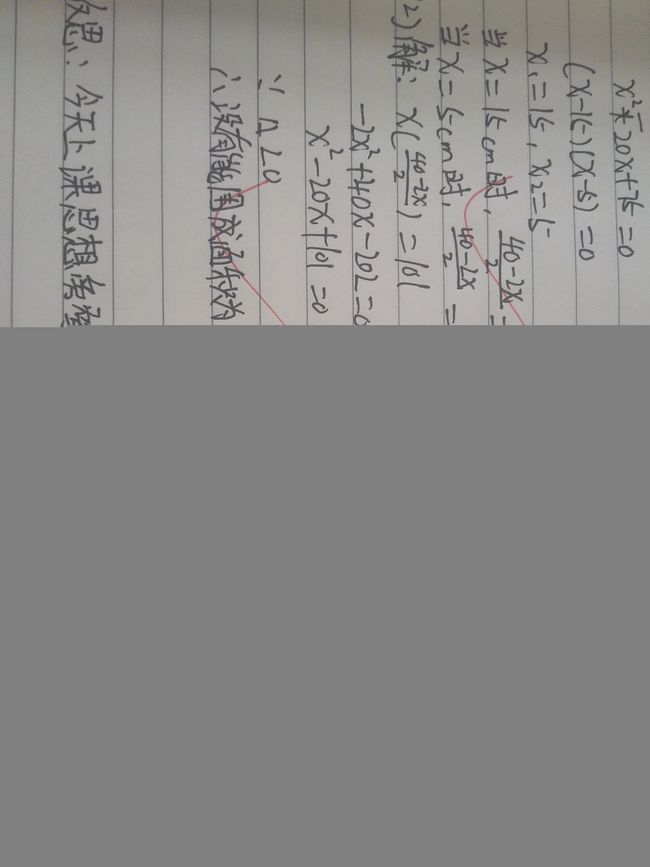 x²-20x+75=0
(x-15)(x-5)=0
x₁=15, x₂=5
当x=15cm时, (40-2x)/2=
当x=5cm时, (40-2x)/2=
2)解: x((40-2x)/2)=101
-2x²+40x-202=0
x²-20x+101=0
∵Δ<0
∴没有能围成面积为
反思: 今天上课思想